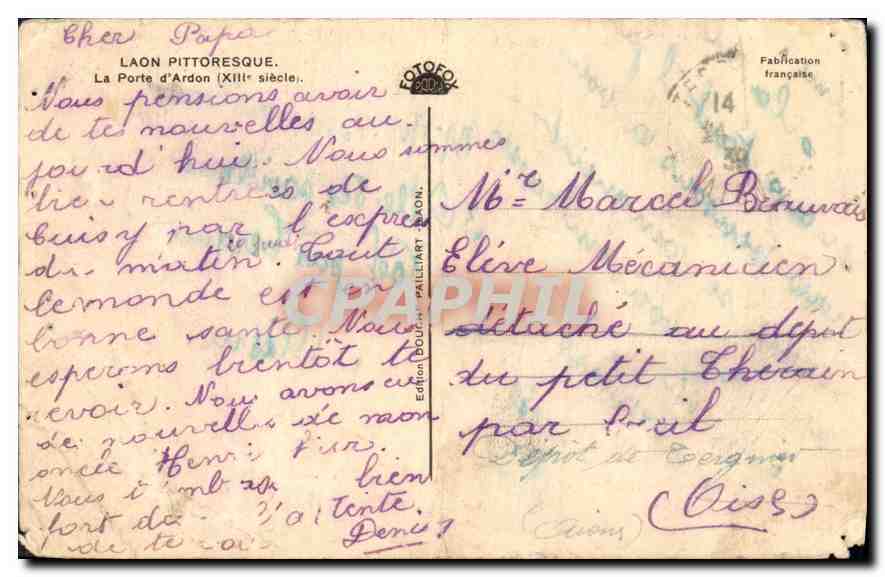 Cher Papa
LAON PITTORESQUE.
La Porte d'Ardon (XIIIe siècle).
Nous pensions avoir
de tes nouvelles au
jourd'hui. Nous sommes
rentrés de
Cuisy par l'expres
du matin. Tout
le monde est en
bonne santé. Nous
esperons bientôt te
revoir. Nous avons eu
de nouvelles de mon
oncle Henri
Nous bien
fort
Denis
FOTOFOX
Edition DOUCHY PAILLIART LAON.
Fabrication
française
14
30
Mr Marcel Beauvais
Elève Mécanicien
détaché au dépôt
du petit Therain
par Creil
Dépôt de Tergnier
(Oise)
(Aisne)
CPAPHIL